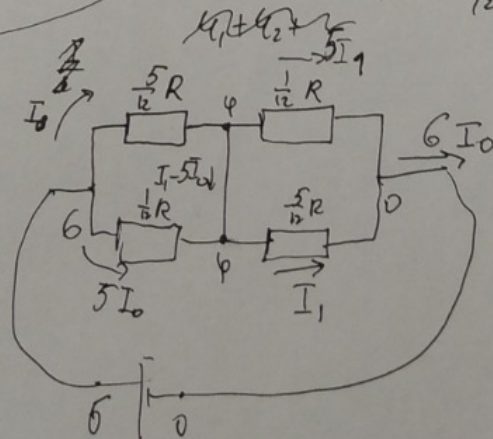 12
5I₁
I₀
5/12 R
φ
1/12 R
6 I₀
I₁-5I₀↓
6
1/12 R
φ
5/12 R
0
5I₀
I₁
6
0